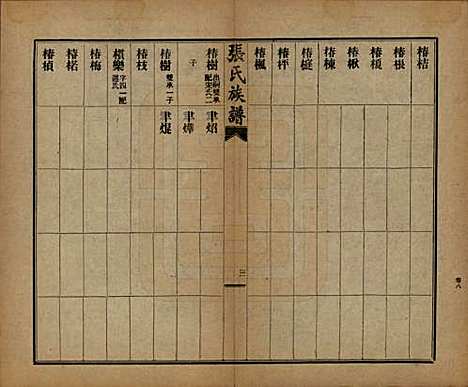 椿桔
椿根
椿榎
椿楸
椿棟
椿梃
椿枰
椿楓
張氏族譜
三
椿樹 出嗣雙承配宋氏二子
聿炤
聿燁
椿樹 雙承一子
聿焜
椿枝
樹欒 字四一配
椿梅
椿楉
椿楨
卷八